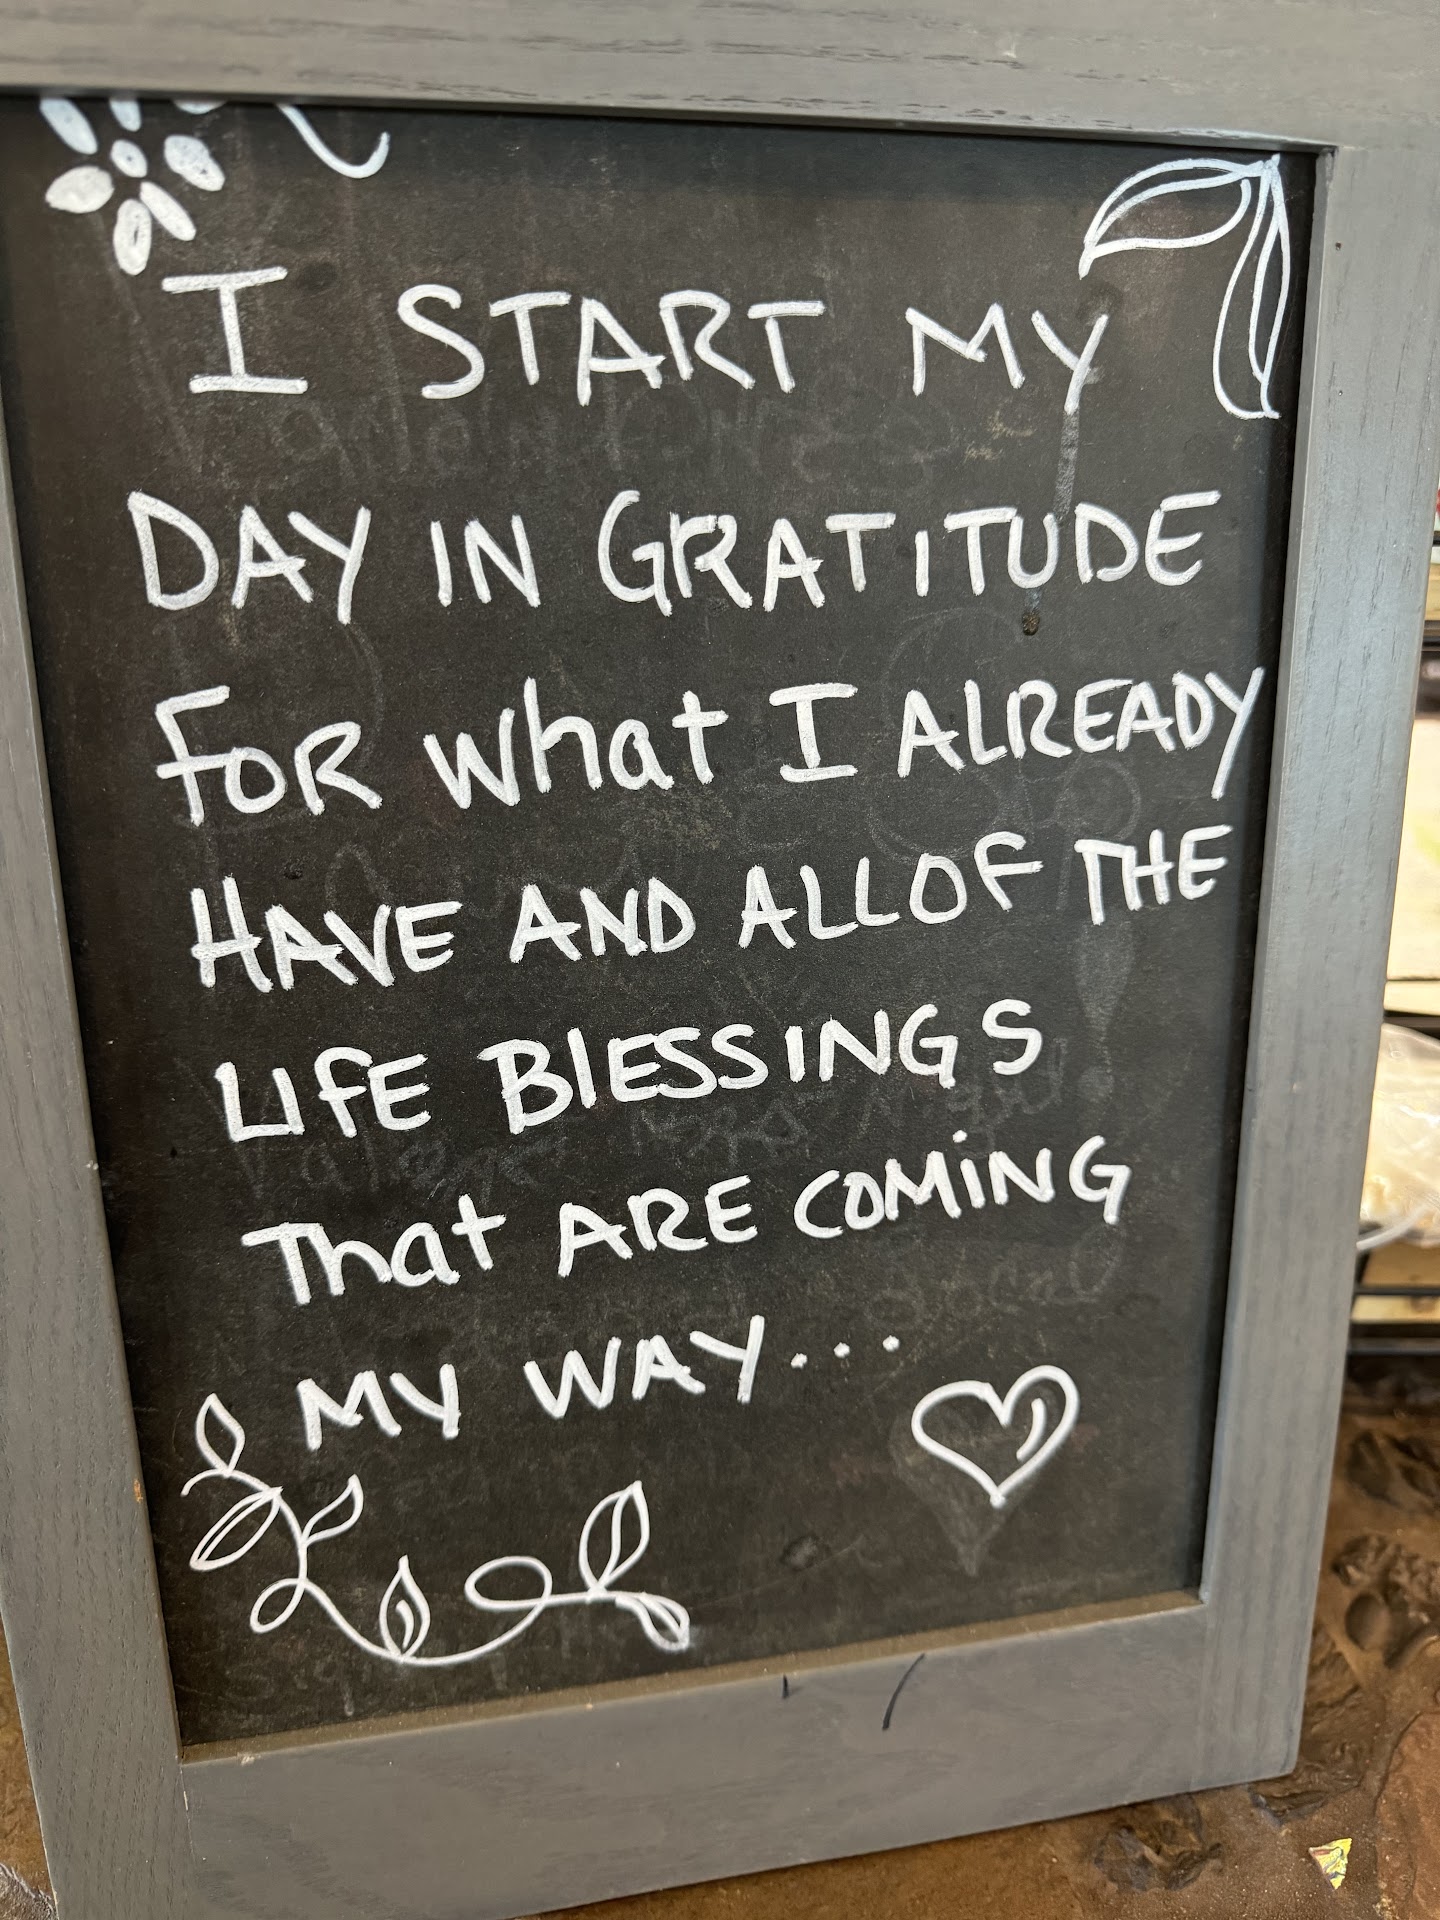 I START MY
DAY IN GRATITUDE
FOR what I ALREADY
HAVE AND ALL OF THE
LIFE BLESSINGS
That ARE COMiNG
MY WAY...